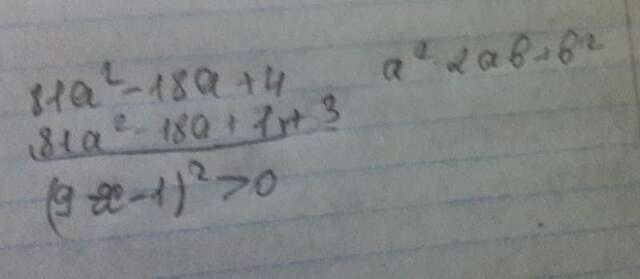 81a² - 18a + 4
a² - 2ab + b²
81a² - 18a + 1 + 3
(9x - 1)² > 0